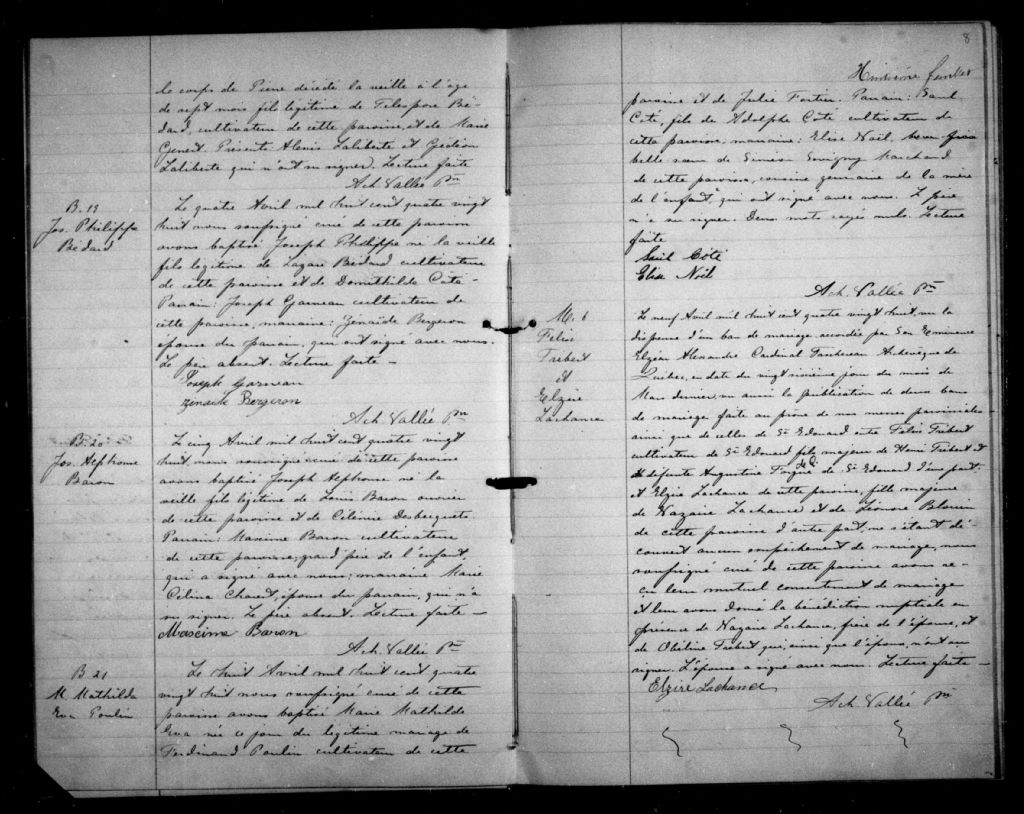 le corps de Pierre décédé la veille à l'âge
de sept mois fils légitime de Télesphore Bé-
dard, cultivateur de cette paroisse, et de Marie
Genest. Présents Alexis Laliberté et Gédéon
Laliberté qui n'ont su signer. Lecture faite
Ach. Vallée Ptre
B. 19
Jos. Philippe
Bédard
Le quatre Avril mil huit cent quatre vingt
huit nous soussigné curé de cette paroisse
avons baptisé Joseph Philippe né la veille
fils légitime de Lazare Bédard cultivateur
de cette paroisse et de Domithilde Côté.
Parrain: Joseph Garneau cultivateur de
cette paroisse, marraine: Zénaïde Bergeron
épouse du parrain, qui ont signé avec nous.
Le père absent. Lecture faite —
Joseph Garneau
Zénaide Bergeron
Ach. Vallée Ptre
B. 20
Jos. Alphonse
Baron
Le cinq Avril mil huit cent quatre vingt
huit, nous soussigné curé de cette paroisse
avons baptisé Joseph Alphonse né la
veille fils légitime de Louis Baron ouvrier
de cette paroisse et de Célénire
Parrain: Maxime Baron cultivateur
de cette paroisse, grand père de l'enfant,
qui a signé avec nous; marraine Marie
Celina Charest, épouse du parrain, qui n'a
su signer. Le père absent. Lecture faite —
Maxime Baron
Ach. Vallée Ptre
B 21
M. Mathilde
Eva Poulin
Le huit Avril mil huit cent quatre
vingt huit nous soussigné curé de cette
paroisse avons baptisé Marie Mathilde
Eva née ce jour du légitime mariage de
Ferdinand Poulin cultivateur de cette
8
Huitième feuillet
paroisse et de Julie Fortier. Parrain:
Côté, fils de Adolphe Côté cultivateur de
cette paroisse, marraine: Elise Noël,
belle soeur de Siméon Marchand
de cette paroisse, cousine germaine de la mère
de l'enfant, qui ont signé avec nous. Le père
n'a su signer. Deux mots rayés nuls. Lecture
faite
Côté
Elise Noël
Ach. Vallée Ptre
M. 6
Félix
Tribert
et
Elzire
Lachance
Le neuf Avril mil huit cent quatre vingt huit, vu la
dispense d'un ban de mariage accordée par Son Eminence
Elzéar Alexandre Cardinal Taschereau Archevêque de
Québec, en date du vingt sixième jour du mois de
Mars dernier, vu aussi la publication de deux bans
de mariage faite au prône de nos messes paroissiales
ainsi que de celles de St Edouard entre Félix Tribert
cultivateur de St Edouard fils majeur de Henri Tribert et
de défunte Augustine de St Edouard d'une part,
et Elzire Lachance de cette paroisse, fille majeure
de Nazaire Lachance et de Léonore Blouin
de cette paroisse d'autre part, ne s'étant dé-
couvert aucun empêchement de mariage, nous
soussigné curé de cette paroisse avons re-
çu leur mutuel consentement de mariage
et leur avons donné la bénédiction nuptiale en
présence de Nazaire Lachance, père de l'épouse, et
de Tribert qui, ainsi que l'époux, n'ont su
signer. L'épouse a signé avec nous. Lecture faite —
Elzire Lachance
Ach. Vallée Ptre